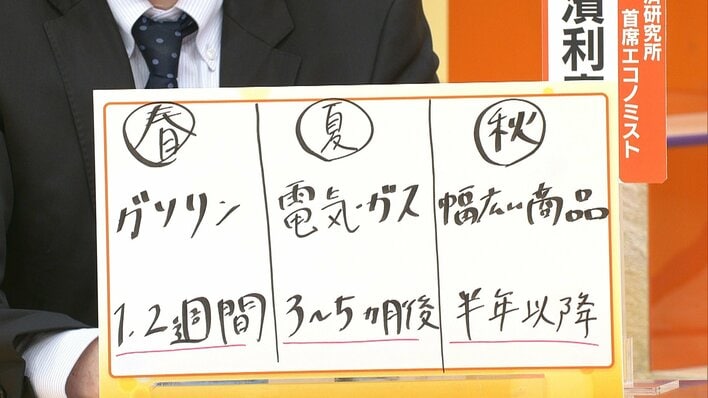 済研究所
首席エコノミスト
濱利
春
ガソリン
1.2週間
夏
電気・ガス
3〜5ヵ月後
秋
幅広い商品
半年以降